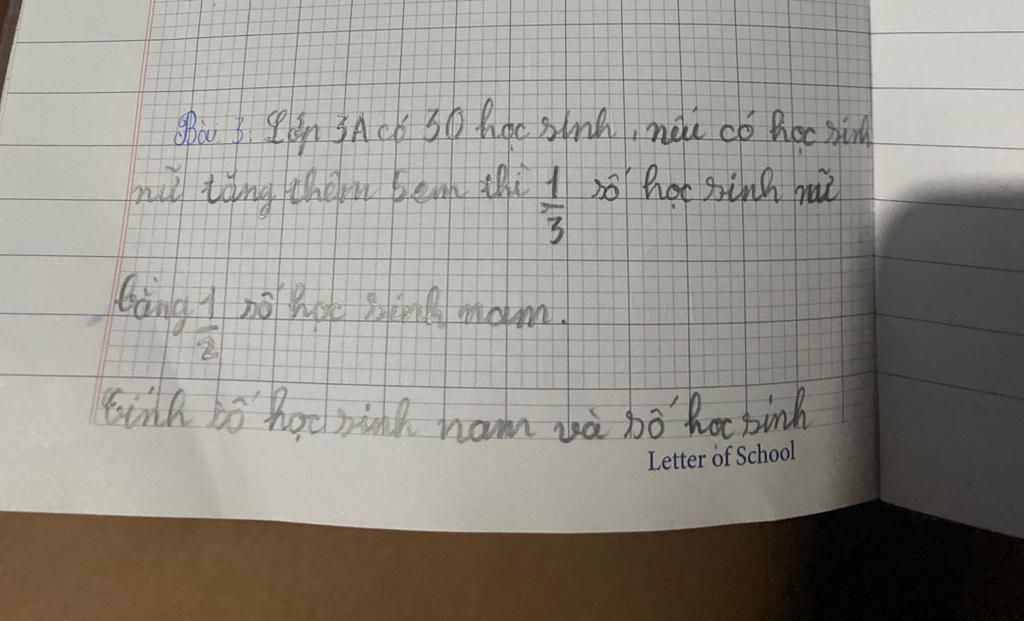 Bài 3: Lớp 3A có 30 học sinh, nếu có học sinh
nữ tăng thêm 5 em thì 1/3 số học sinh nữ
bằng 1/2 số học sinh nam.
tính số học sinh nam và số học sinh
Letter of School